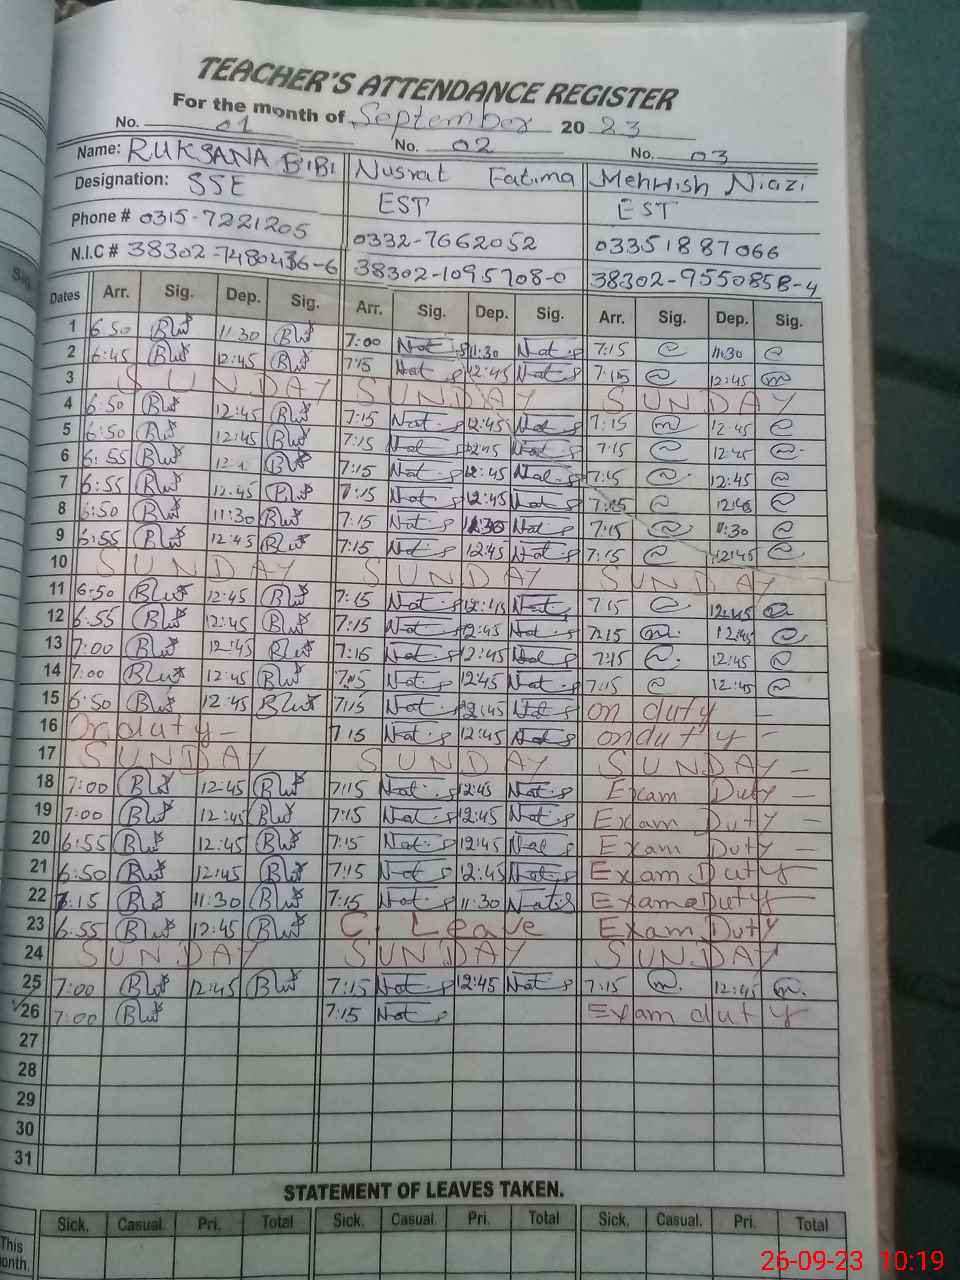 TEACHER'S ATTENDANCE REGISTER
For the month of September 2023
No. 01 No. 02 No. 03
Name: RUKSANA BIBI Nusrat Fatima Mehwish Niazi
Designation: SSE EST EST
Phone # 0315-7221205 0332-7662052 03351887066
N.I.C # 38302-7480436-6 38302-1095708-0 38302-9550858-4
Dates Arr. Sig. Dep. Sig. Arr. Sig. Dep. Sig. Arr. Sig. Dep. Sig.
1 6:50 11:30 7:00 Nat.s 11:30 Nat.s 7:15 11:30
2 6:45 12:45 7:15 Nat.s 12:45 Nat.s 7:15 12:45
3 SUNDAY SUNDAY SUNDAY
4 6:50 12:45 7:15 Nat.s 12:45 Nat.s 7:15 12:45
5 6:50 12:45 7:15 Nat.s 12:45 Nat.s 7:15 12:45
6 6:55 7:15 Nat.s 12:45 Nat.s 7:15 12:45
7 6:55 12:45 7:15 Nat.s 12:45 Nat.s 7:15 12:45
8 6:50 11:30 7:15 Nat.s 11:30 Nat.s 7:15 11:30
9 6:55 12:45 7:15 Nat.s 12:45 Nat.s 7:15 12:45
10 SUNDAY SUNDAY SUNDAY
11 6:50 12:45 7:15 Nat.s 12:45 Nat.s 7:15 12:45
12 6:55 12:45 7:15 Nat.s 12:45 Nat.s 7:15 12:45
13 7:00 12:45 7:15 Nat.s 12:45 Nat.s 7:15 12:45
14 7:00 12:45 7:15 Nat.s 12:45 Nat.s 7:15 12:45
15 6:50 12:45 7:15 Nat.s 12:45 Nat.s on duty -
16 On duty - 7:15 Nat.s 12:45 Nat.s on duty -
17 SUNDAY SUNDAY SUNDAY -
18 7:00 12:45 7:15 Nat.s 12:45 Nat.s Exam Duty -
19 7:00 12:45 7:15 Nat.s 12:45 Nat.s Exam Duty -
20 6:55 12:45 7:15 Nat.s 12:45 Nat.s Exam Duty -
21 6:50 12:45 7:15 Nat.s 12:45 Nat.s Exam Duty -
22 7:15 11:30 7:15 Nat.s 11:30 Nat.s Exam Duty -
23 6:55 12:45 C. Leave Exam Duty
24 SUNDAY SUNDAY SUNDAY
25 7:00 12:45 7:15 Nat.s 12:45 Nat.s 7:15 12:45
26 7:00 7:15 Nat.s Exam duty
27
28
29
30
31
STATEMENT OF LEAVES TAKEN.
Sick. Casual. Pri. Total Sick. Casual. Pri. Total Sick. Casual. Pri. Total
This
26-09-23 10:19